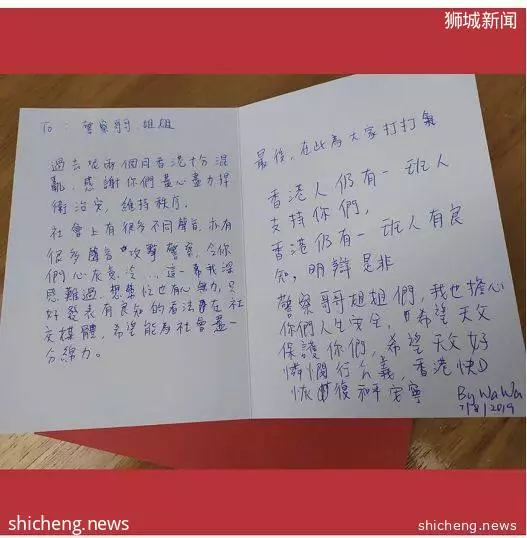 狮城新闻
To: 警察哥哥姐姐
過去呢兩個月香港十分混
亂, 感謝你們盡心盡力捍
衛治安, 維持秩序。
社會上有很多不同聲音, 亦有
很多聲音攻擊警察, 令你
們心灰意冷... 這一幕我深
感難過, 想幫忙也有心無力, 只
好發表有良知的看法在社
交媒體, 希望能為社會盡一
分綿力。
最後, 在此為大家打打氣
香港人仍有一班人
支持你們,
香港仍有一班人有良
知, 明辨是非
警察哥哥姐姐們, 我也擔心
你們人生安全, 希望天父
保護你們, 希望天父好
憐憫行公義, 香港快D
恢復和平安寧
By WaWa
7/8/2019
shicheng.news
shicheng.news